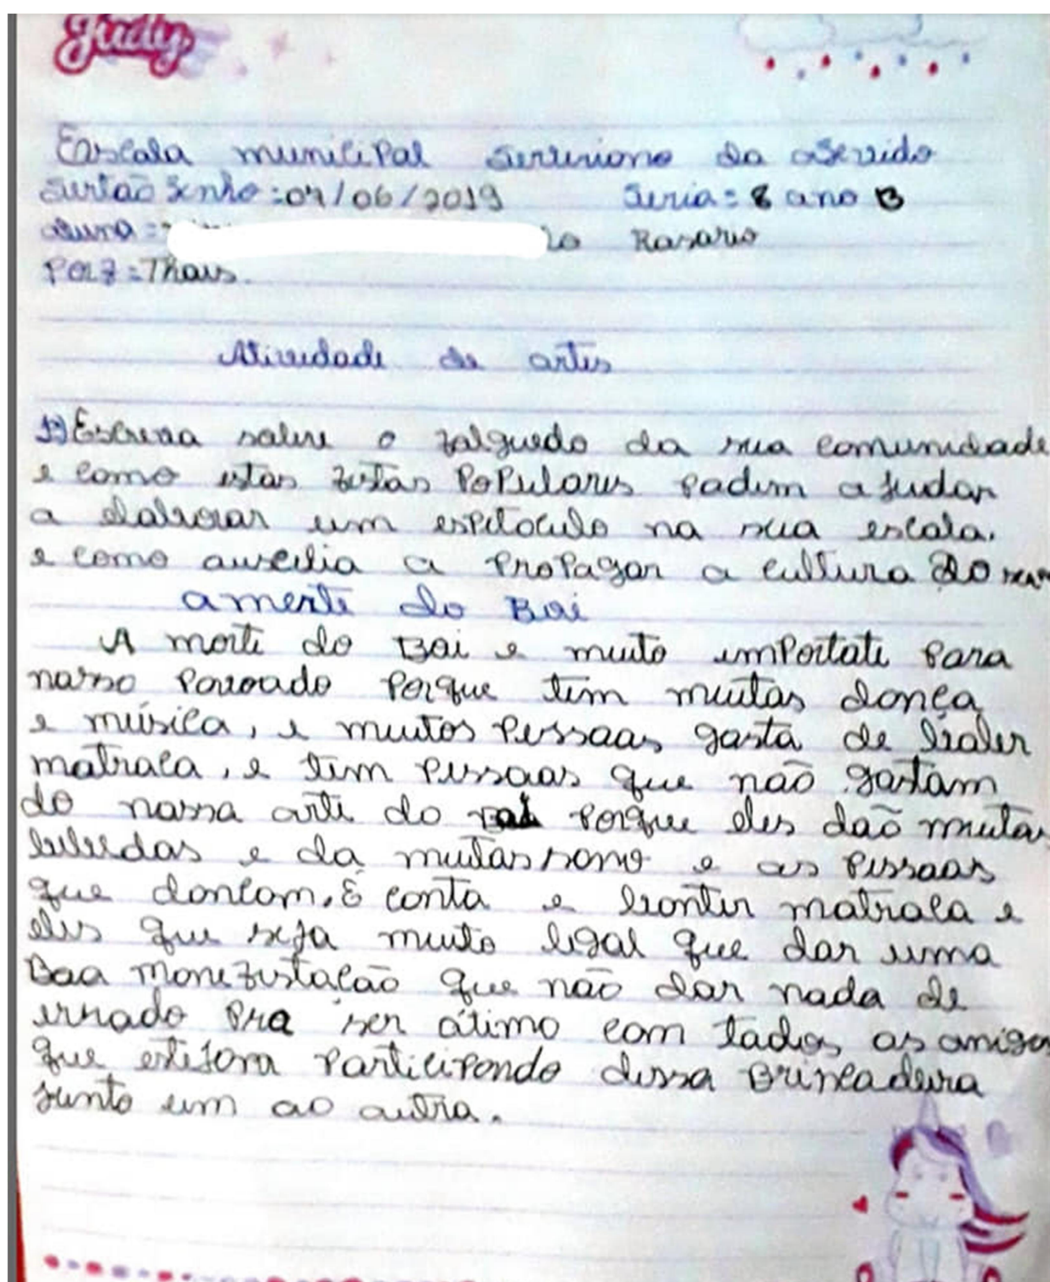 Judy
Escola municipal Severiano de Asevido
Surtãosinho: 07/06/2019 Seria: 8 ano B
aluna: Rosario
Thais.
Atividade de artes
1º) Escreva sobre o folguedo da sua comunidade
e como estas festas PoPulares podem ajudar
a elaborar um espetaculo na sua escola.
e como auxilia a ProPagar a cultura do
amorte do Boi
A morte do Boi e muito imPortate para
nosso Povoado Porque tem muitas dança
e música, e muitos Pessoas gosta de bater
matraca, e tem Pessoas que não gostam
do nossa arte do Boi Porque eles daõ muitas
bebidas e da muitas sono e as Pessoas
que dancam, É canta e bonter matraca e
eles que seja muito legal que dar uma
Boa manefistacão que não dar nada de
errado Pra ser átimo com todos os amigos
que estifora ParticiPondo dessa Brincadeira
Junto um ao outra.